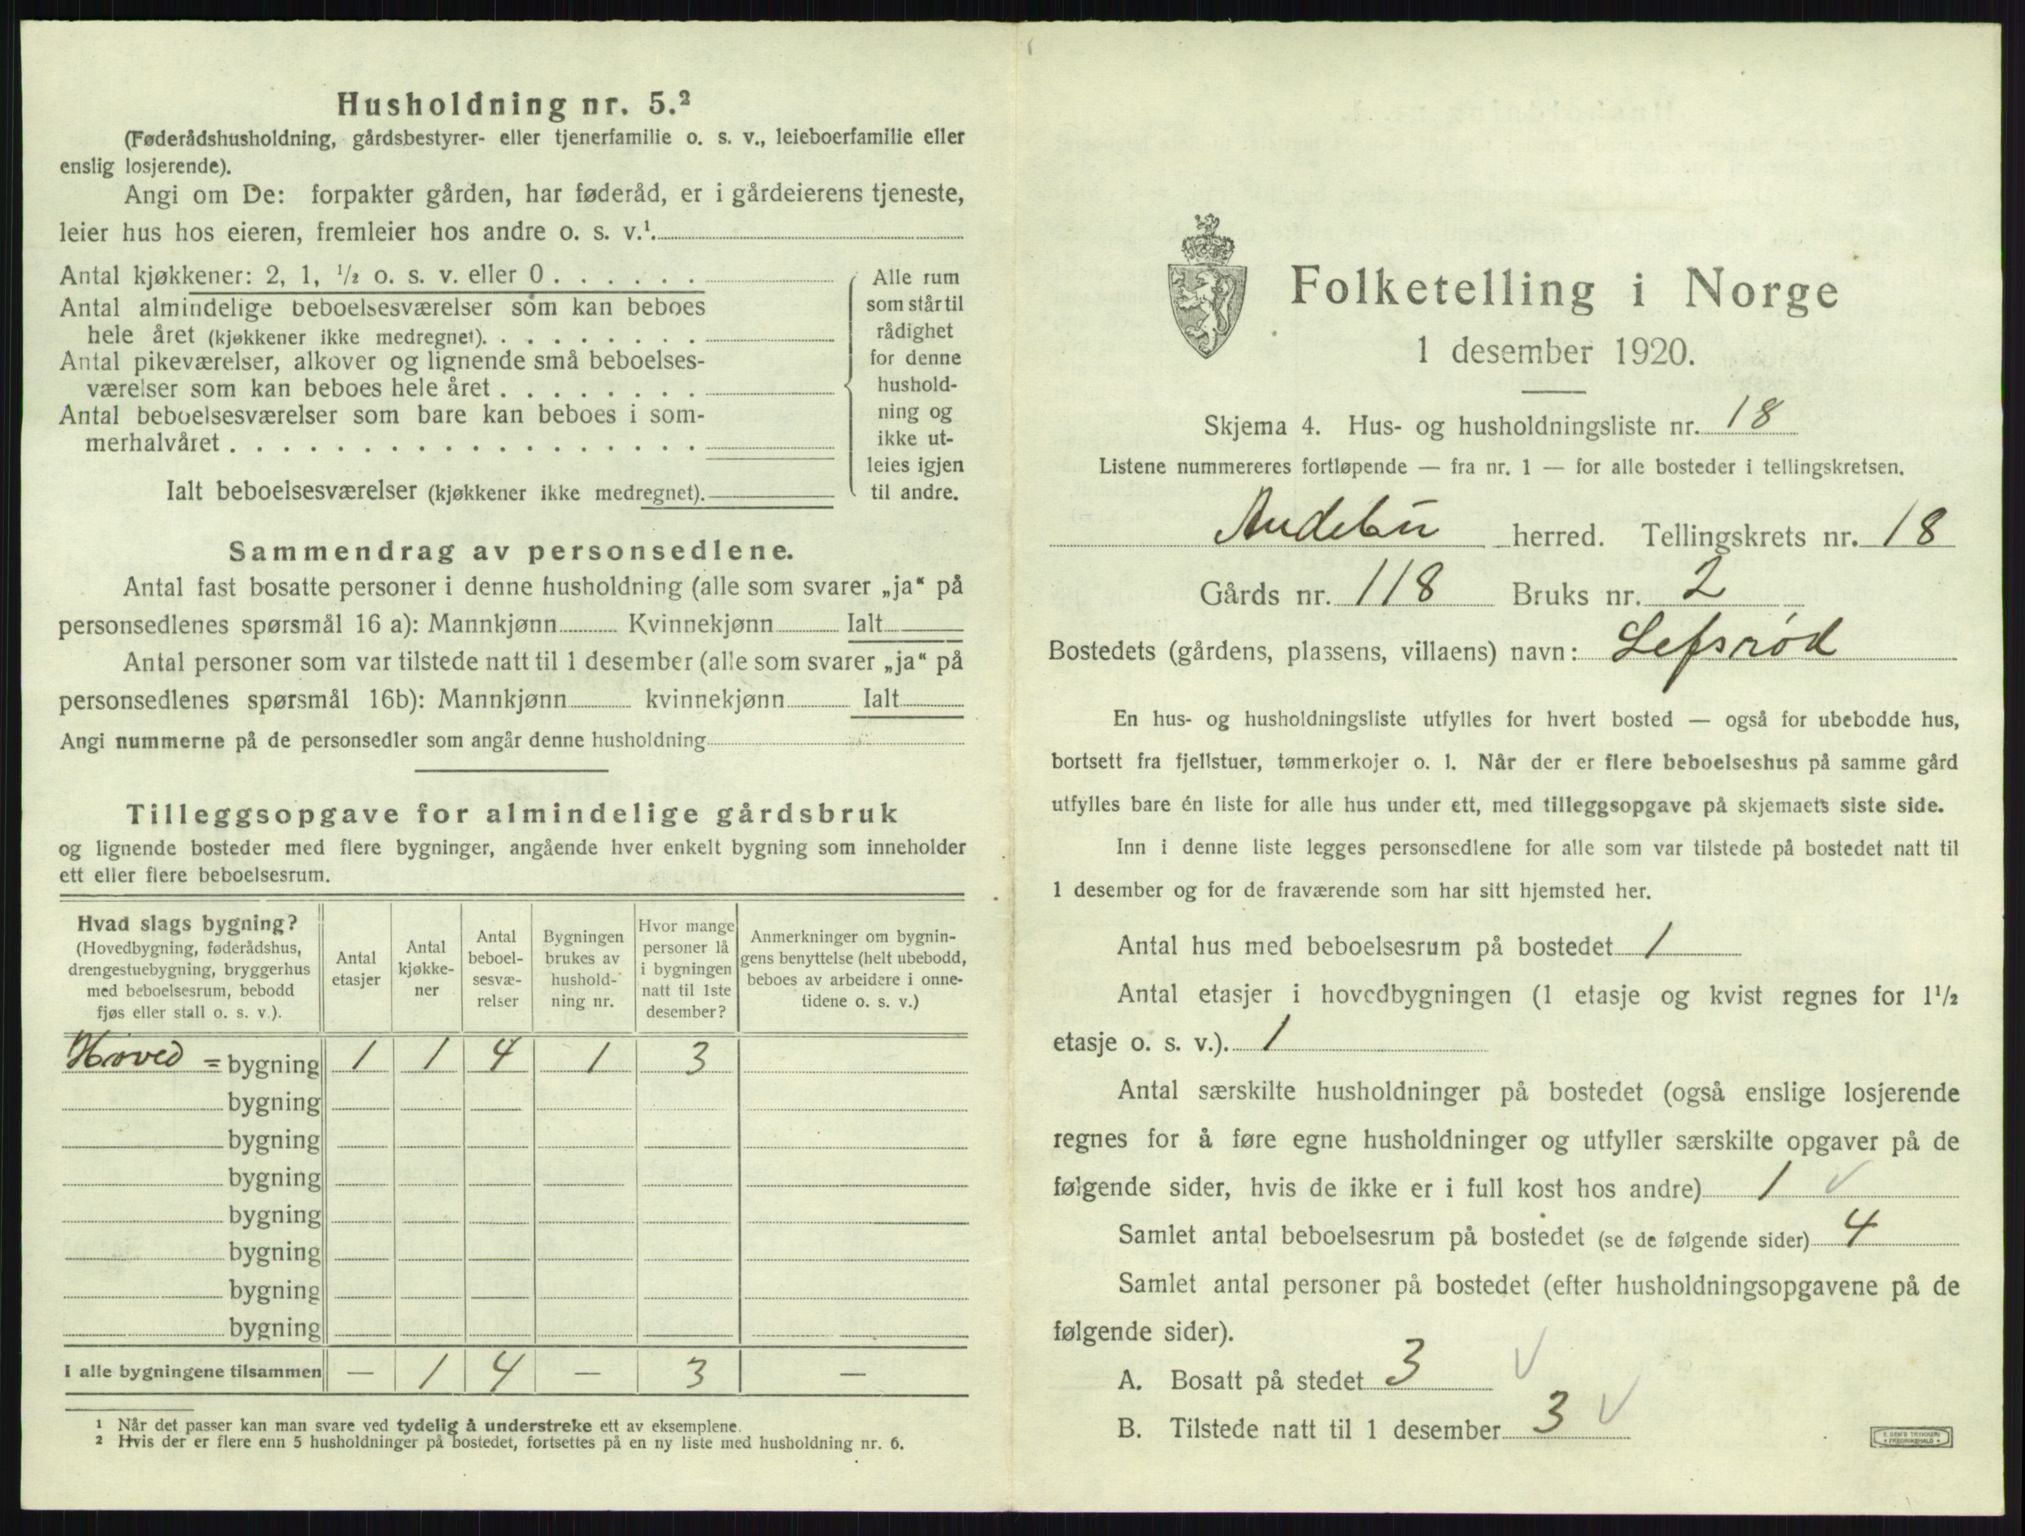 Husholdning nr. 5.²
(Føderådshusholdning, gårdsbestyrer- eller tjenerfamilie o. s. v., leieboerfamilie eller
enslig losjerende).
Angi om De: forpakter gården, har føderåd, er i gårdeierens tjeneste,
leier hus hos eieren, fremleier hos andre o. s. v.¹.
Antal kjøkkener: 2, 1, ½ o. s. v. eller 0 . . . . . .
Antal almindelige beboelsesværelser som kan beboes
hele året (kjøkkener ikke medregnet). . . . . . . . .
Antal pikeværelser, alkover og lignende små beboelses-
værelser som kan beboes hele året . . . . . . . .
Antal beboelsesværelser som bare kan beboes i som-
merhalvåret . . . . . . . . . . . . . . . . . .
Ialt beboelsesværelser (kjøkkener ikke medregnet).
Alle rum
som står til
rådighet
for denne
hushold-
ning og
ikke ut-
leies igjen
til andre.
Sammendrag av personsedlene.
Antal fast bosatte personer i denne husholdning (alle som svarer „ja“ på
personsedlenes spørsmål 16 a): Mannkjønn Kvinnekjønn Ialt
Antal personer som var tilstede natt til 1 desember (alle som svarer „ja“ på
personsedlenes spørsmål 16b): Mannkjønn kvinnekjønn Ialt
Angi nummerne på de personsedler som angår denne husholdning
Tilleggsopgave for almindelige gårdsbruk
og lignende bosteder med flere bygninger, angående hver enkelt bygning som inneholder
ett eller flere beboelsesrum.
Hvad slags bygning?
(Hovedbygning, føderådshus,
drengestuebygning, bryggerhus
med beboelsesrum, bebodd
fjøs eller stall o. s. v.).
Antal
etasjer
Antal
kjøkke-
ner
Antal
beboel-
sesvæ-
relser
Bygningen
brukes av
hushold-
ning nr.
Hvor mange
personer lå
i bygningen
natt til 1ste
desember?
Anmerkninger om bygnin-
gens benyttelse (helt ubebodd,
beboes av arbeidere i onne-
tidene o. s. v.)
Hoved = bygning 1 1 4 1 3
bygning
bygning
bygning
bygning
bygning
bygning
bygning
I alle bygningene tilsammen — 1 4 — 3 —
¹ Når det passer kan man svare ved tydelig å understreke ett av eksemplene.
² Hvis der er flere enn 5 husholdninger på bostedet, fortsettes på en ny liste med husholdning nr. 6.
Folketelling i Norge
1 desember 1920.
Skjema 4. Hus- og husholdningsliste nr. 18
Listene nummereres fortløpende — fra nr. 1 — for alle bosteder i tellingskretsen.
Andebu herred. Tellingskrets nr. 18
Gårds nr. 118 Bruks nr. 2
Bostedets (gårdens, plassens, villaens) navn: Lefsrød
En hus- og husholdningsliste utfylles for hvert bosted — også for ubebodde hus,
bortsett fra fjellstuer, tømmerkojer o. l. Når der er flere beboelseshus på samme gård
utfylles bare én liste for alle hus under ett, med tilleggsopgave på skjemaets siste side.
Inn i denne liste legges personsedlene for alle som var tilstede på bostedet natt til
1 desember og for de fraværende som har sitt hjemsted her.
Antal hus med beboelsesrum på bostedet 1
Antal etasjer i hovedbygningen (1 etasje og kvist regnes for 1½
etasje o. s. v.). 1
Antal særskilte husholdninger på bostedet (også enslige losjerende
regnes for å føre egne husholdninger og utfyller særskilte opgaver på de
følgende sider, hvis de ikke er i full kost hos andre) 1 ✓
Samlet antal beboelsesrum på bostedet (se de følgende sider) 4
Samlet antal personer på bostedet (efter husholdningsopgavene på de
følgende sider).
A. Bosatt på stedet 3 ✓
B. Tilstede natt til 1 desember 3 ✓